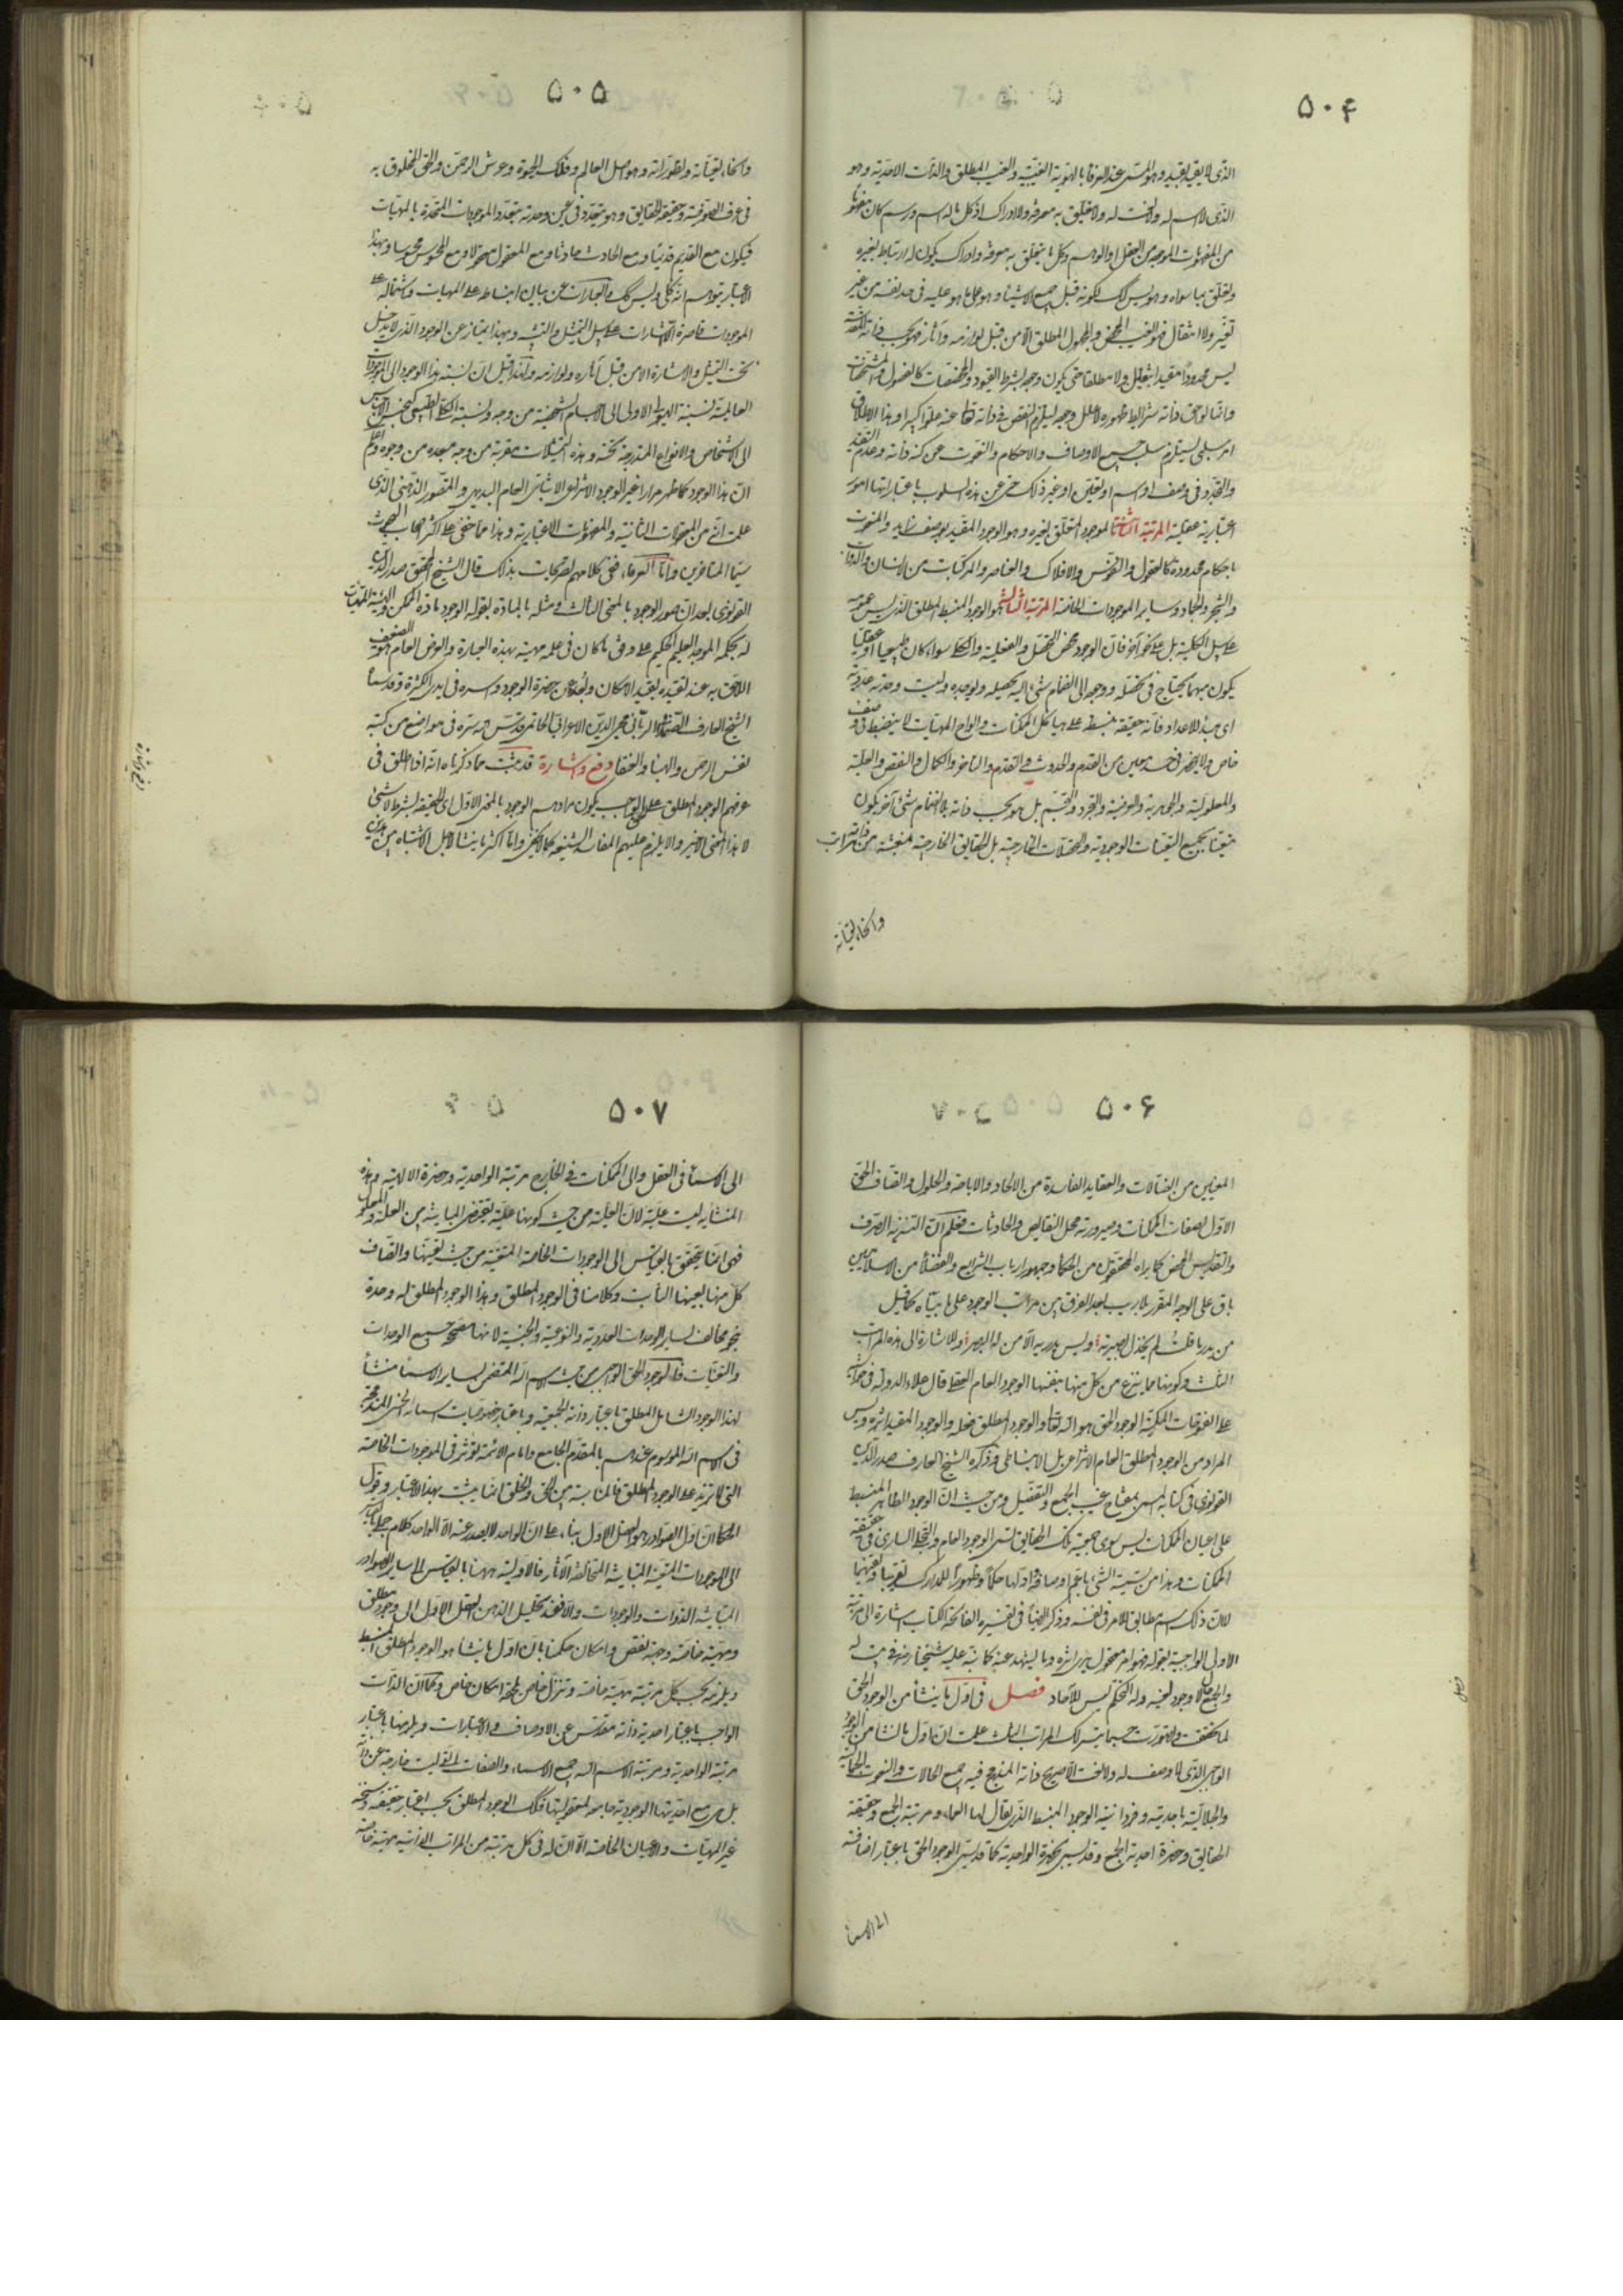 ۵۰۴
الذی لا یقید بقید وهو المسمی عند العرفا بالهویة الغیبیة والغیب المطلق والذات الاحدیة وهو
الذی لا اسم له ولا نعت له ولا یتعلق به معرفة ولا ادراک اذ کل ما له اسم ورسم کان مفهوما
من المفهومات الموجودة فی العقل او الوهم وکل ما یتعلق به معرفة وادراک یکون له ارتباط بغیره
وتعلق بما سواه وهو لیس کک لکونه قبل جمیع الاشیاء وهو علی ما هو علیه فی حد نفسه من غیر
تغیر ولا انتقال فهو الغیب المحض والمجهول المطلق الا من قبل لوازمه وآثاره فهو بحسب ذاته المقدسة
لیس محدودا مقیدا بتعین ولا مطلقا حتی یکون وجوده بشرط القیود والمخصصات کالفصول والمشخصات
وانما لواحق ذاته شرایط ظهوره لا علل وجوده لیلزم النقص فی ذاته تعا عنه علوا کبیرا وهذا الاطلاق
امر سلبی یستلزم سلب جمیع الاوصاف والاحکام والنعوت عن کنه ذاته وعدم التقید
والتجدد فی وصف او اسم او تعین او غیر ذلک حتی عن هذه السلوب باعتبار انها امور
اعتباریة عقلیة المرتبة الثانیة الموجود المتعلق بغیره وهو الوجود المقید بوصف زاید والمنعوت
باحکام محدودة کالعقول والنفوس والافلاک والعناصر والمرکبات من الانسان والدواب
والشجر والجماد وسایر الموجودات الخاصة المرتبة الثالثة هو الوجود المنبسط المطلق الذی لیس عمومه
علی سبیل الکلیة بل علی نحو آخر فان الوجود محض التحصل والفعلیة والکلی سواء کان طبیعیا او عقلیا
یکون مبهما یحتاج فی تحصله ووجوده الی انضمام شئ الیه یحصله ویوجده ولیست وحدته عددیة
ای مبدأ للاعداد فانه حقیقة منبسطة علی هیاکل الممکنات والواح المهیات لا ینضبط فی وصف
خاص ولا ینحصر فی حد معین من القدم والحدوث والتقدم والتاخر والکمال والنقص والعلیة
والمعلولیة والجوهریة والعرضیة والتجرد والتجسم بل هو بحسب ذاته بلا انضمام شئ آخر یکون
متعینا بجمیع التعینات الوجودیة والتحصلات الخارجیة بل الحقایق الخارجیة منبعثة من مراتب ذاته
وانحاء تعیناته
۵۰۵
وانحاء تعیناته وتطوراته وهو اصل العالم وفلک الحیوة وعرش الرحمن والحق المخلوق به
فی عرف الصوفیة وحقیقة الحقایق وهو یتعدد فی عین وحدته بتعدد الموجودات المتحدة بالمهیات
فیکون مع القدیم قدیما ومع الحادث حادثا ومع المعقول معقولا ومع المحسوس محسوسا وبهذا
الاعتبار یتوهم انه کلی ولیس کک والعبارات عن بیان انبساطه علی المهیات واشتماله علی
الموجودات قاصرة الاشارات علی سبیل التمثیل والتشبیه وبهذا یمتاز عن الوجود الذی لا یدخل
تحت التمثیل والاشارة الا من قبل آثاره ولوازمه ولهذا قیل ان نسبة هذا الوجود الی الموجودات
العالمیة نسبة الهیولی الاولی الی الاجسام الشخصیة من وجه ونسبة الکلی الطبیعی کجنس الاجناس
الی الاشخاص والانواع المندرجة تحته وهذه التمثیلات مقربة من وجه مبعدة من وجوه واعلم
ان هذا الوجود کما ظهر مرارا غیر الوجود الانتزاعی الاثباتی العام البدیهی والمتصور الذهنی الذی
علمت انه من المعقولات الثانیة والمفهومات الاعتباریة وهذا مما خفی علی اکثر اصحاب البحوث
سیما المتاخرین واما العرفاء ففی کلامهم تصریحات بذلک قال الشیخ المحقق صدر الدین
القونوی بعد ان صور الوجود بالمعنی الثالث ومثله بالمادة بقوله الوجود مادة الممکن والهیئة المهیاة
له بحکمة الموجد العلیم الحکیم علی وفق ما کان فی علمه مهیئة بهذه العبارة والعرض العام هو الضعف
اللاحق به عند تقیده بقید الامکان وبعده عن حضرة الوجود واسره فی ایدی الکثرة وقد سماه
الشیخ العارف الصمدانی الربانی محی الدین الاعرابی الحاتمی قدس سره فی مواضع من کتبه
نفس الرحمن والهباء والعنقا دفع واشارة قد ثبت مما ذکرناه انه اذا اطلق فی
عرفهم الوجود المطلق علی الواجب یکون مرادهم الوجود بالمعنی الاول ای الحقیقة بشرط لا شئ
لا هذا المعنی الاخیر والا یلزم علیهم المفاسد الشنیعة کما لا یخفی واما اکثر ما ینشا لاجل الاشتباه بین هذین
۵۰۶
المعنیین من الضلالات والعقاید الفاسدة من الالحاد والاباحة والحلول واتصاف الحق
الاول بصفات الممکنات وصیرورته محل النقایص والحادثات فعلم ان التنزیه الصرف
والتقدیس المحض کما یراه المحققون من الحکما وجمهور ارباب الشرایع والفضلا من الاسلامیین
باق علی الوجه المقرر بلا ریب بعد الفرق بین مراتب الوجود علی ما بیناه کما قیل
من یدر ما قلت لم یخذل بصیرته ولیس یدریه الا من له البصر وللاشارة الی هذه المراتب
الثلث وکونها مما ینتزع من کل منها بنفسها الوجود العام العقلی قال علاء الدولة فی حواشیه
علی الفتوحات المکیة الوجود الحق هو الله تعا والوجود المطلق فعله والوجود المقید اثره ولیس
المراد من الوجود المطلق العام الانتزاعی بل الانبساطی وذکره الشیخ العارف صدر الدین
القونوی فی کتابه المسمی بمفتاح غیب الجمع والتفصیل ومن حیث ان الوجود الظاهر المنبسط
علی اعیان الممکنات لیس سوی جمعیة تلک الحقایق یسمی الوجود العام والتجلی الساری فی حقیقة
الممکنات وهذا من تسمیة الشئ باعم اوصافه اولها حکما وظهورا للمدارک تقریبا وتفهیما
لا ان ذلک اسم مطابق للامر فی نفسه وذکر ایضا فی تفسیره الفاتحة الکتاب اشارة الی مرتبة
الاولی الواجبیة بقوله فهو امر معقول یری اثره وما لیشهد عینه کما نبه علیه شیخنا رض فی بیت له
والجمع حال لا وجود لعینه وله التحکم لیس للآحاد فصل فی اول ما ینشأ من الوجود الحق
لما تحققت وتصورت حسبما یتسر لک المراتب الثلث علمت ان اول ما نشا من الوجود
الواجبی الذی لا وصف له ولا نعت الا صریح ذاته المندمج فیه جمیع الحالات والنعوت الجمالیة
والجلالیة باحدیته وفردانیته الوجود المنبسط الذی یقال لها العماء ومرتبة الجمع وحقیقة
الحقایق وحضرة احدیة الجمع وقد یسمی بحضرة الواحدیة کما قد یسمی الوجود الحق باعتبار اضافته
الی الاسما
۵۰۷
الی الاسما فی العقل والی الممکنات فی الخارج مرتبة الواحدیة وحضرة الالهیة وهذه
المنشأیة لیست علیة لان العلیة من حیث کونها علیة تقتضی المباینة بین العلة والمعلول
فهی انما یتحقق بالقیاس الی الوجودات الخاصة المتعینة من حیث تعینها واتصاف
کل منها بعینها الثابت وکلامنا فی الوجود المطلق وهذا الوجود المطلق له وحدة
بنحو مخالف لسایر الوحدات العددیة والنوعیة والجنسیة لانها مصحح جمیع الوحدات
والتعینات فالوجود الحق الواجبی من حیث اسم الله المتضمن لسایر الاسما منشأ
لهذا الوجود الشامل المطلق باعتبار ذاته الجمعیة وباعتبار خصوصیات اسمائه الحسنی المندمجة
فی الاسم الله الموسوم عندهم بالمقدم الجامع وامام الائمة مؤثر فی الموجودات الخاصة
التی لا تزید علی الوجود المطلق فالمناسبة بین الحق والخلق انما یثبت بهذا الاعتبار وقول
الحکما ان اول الصوادر هو العقل الاول بناء علی ان الواحد لا یصدر عنه الا الواحد کلام جملی بالقیاس
الی الموجودات المتعینة المتباینة المتخالفة الآثار فالاولیة ههنا بالقیاس الی سایر الصوادر
المتباینة الذوات والوجودات والا فعند تحلیل الذهن العقل الاول الی وجود مطلق
ومهیة خاصة وجهة نقص وامکان حکمنا بان اول ما ینشا هو الوجود المطلق المنبسط
ویلزمه بحسب کل مرتبة مهیة خاصة وتنزل خاص یلحقه امکان خاص وکما ان الذات
الواجب باعتبار احدیة ذاته مقدس عن الاوصاف والاعتبارات ویلزمها باعتبار
مرتبة الواحدیة ومرتبة الاسم الله جمیع الاسماء والصفات التی لیست خارجة عن ذاته
بل هی مع احدیتها الوجودیة جامعة لمعقولیتها فکذلک الوجود المطلق بحسب اعتبار حقیقته وسنخه
غیر المهیات والاعیان الخاصة الا ان له فی کل مرتبة من المراتب الذاتیة مهیة خاصة